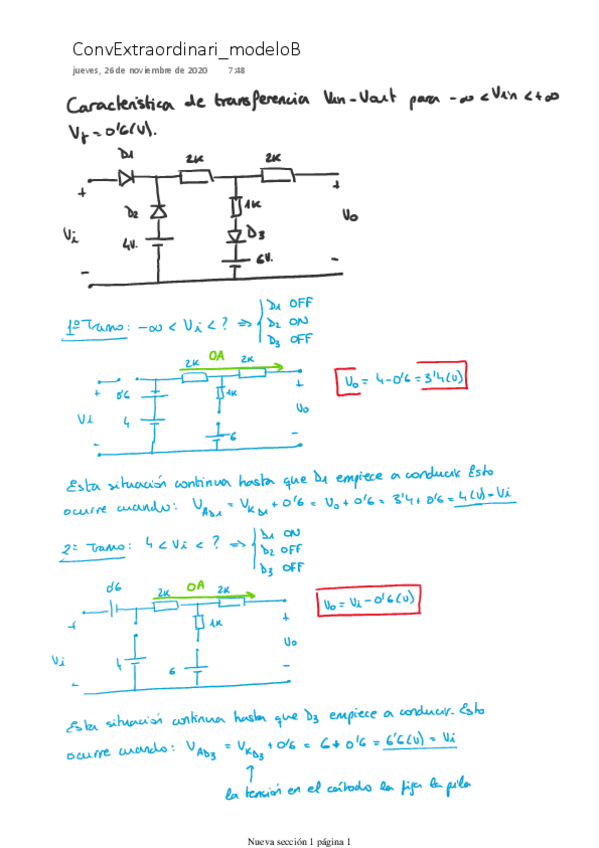 ConvExtraordinari_modeloB
jueves, 26 de noviembre de 2020 7:48
Característica de transferencia Vin-Vout para -∞ < Vin < +∞
Vγ = 0'6(V).
D1
2K
2K
+
+
D2
1K
Vi
D3
Vo
4V.
6V.
-
-
1º Tramo: -∞ < Vi < ? ⇒
D1 OFF
D2 ON
D3 OFF
2K 0A 2K
+
0'6
1K
+
Vi
4
Vo
6
-
-
Vo = 4-0'6 = 3'4(V)
Esta situación continua hasta que D1 empiece a conducir. Esto
ocurre cuando: VAD1 = VKD1 + 0'6 = Vo + 0'6 = 3'4 + 0'6 = 4(V) = Vi
2º Tramo: 4 < Vi < ? ⇒
D1 ON
D2 OFF
D3 OFF
0'6
2K 0A 2K
+
1K
+
Vo
Vi
4
6
-
-
Vo = Vi - 0'6(V)
Esta situación continua hasta que D3 empiece a conducir. Esto
ocurre cuando: VAD3 = VKD3 + 0'6 = 6 + 0'6 = 6'6(V) = Vi
↑
la tensión en el cátodo la fija la pila
Nueva sección 1 página 1